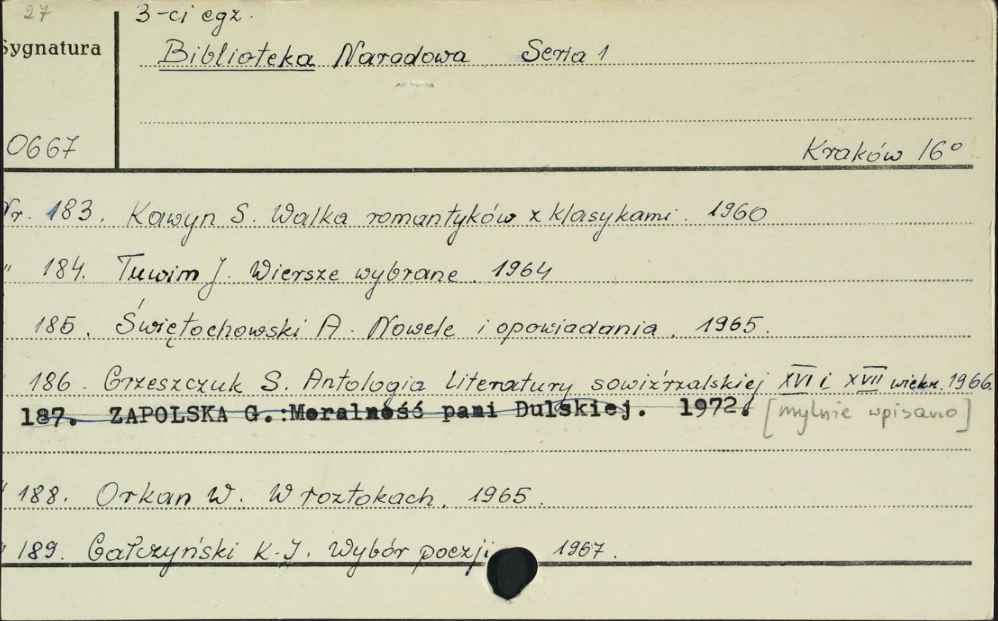 27
3-ci egz.
Sygnatura
Biblioteka Narodowa Seria 1
0667
Kraków 16°
Nr. 183. Kawyn S. Walka romantyków z klasykami. 1960
" 184. Tuwim J. Wiersze wybrane. 1964
185. Świętochowski A. Nowele i opowiadania. 1965.
186. Grzeszczuk S. Antologia literatury sowiźrzalskiej XVI i XVII wieku. 1966.
187. ZAPOLSKA G.:Moralność pani Dulskiej. 1972. [mylnie wpisano]
" 188. Orkan W. W roztokach. 1965.
" 189. Gałczyński K.J. Wybór poezji 1967.